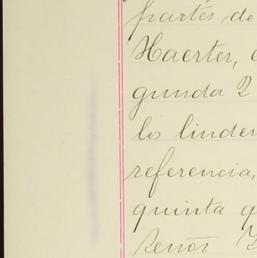 partes de
Haerter,
gunda 2
los linder
referencia,
quinta q
señor